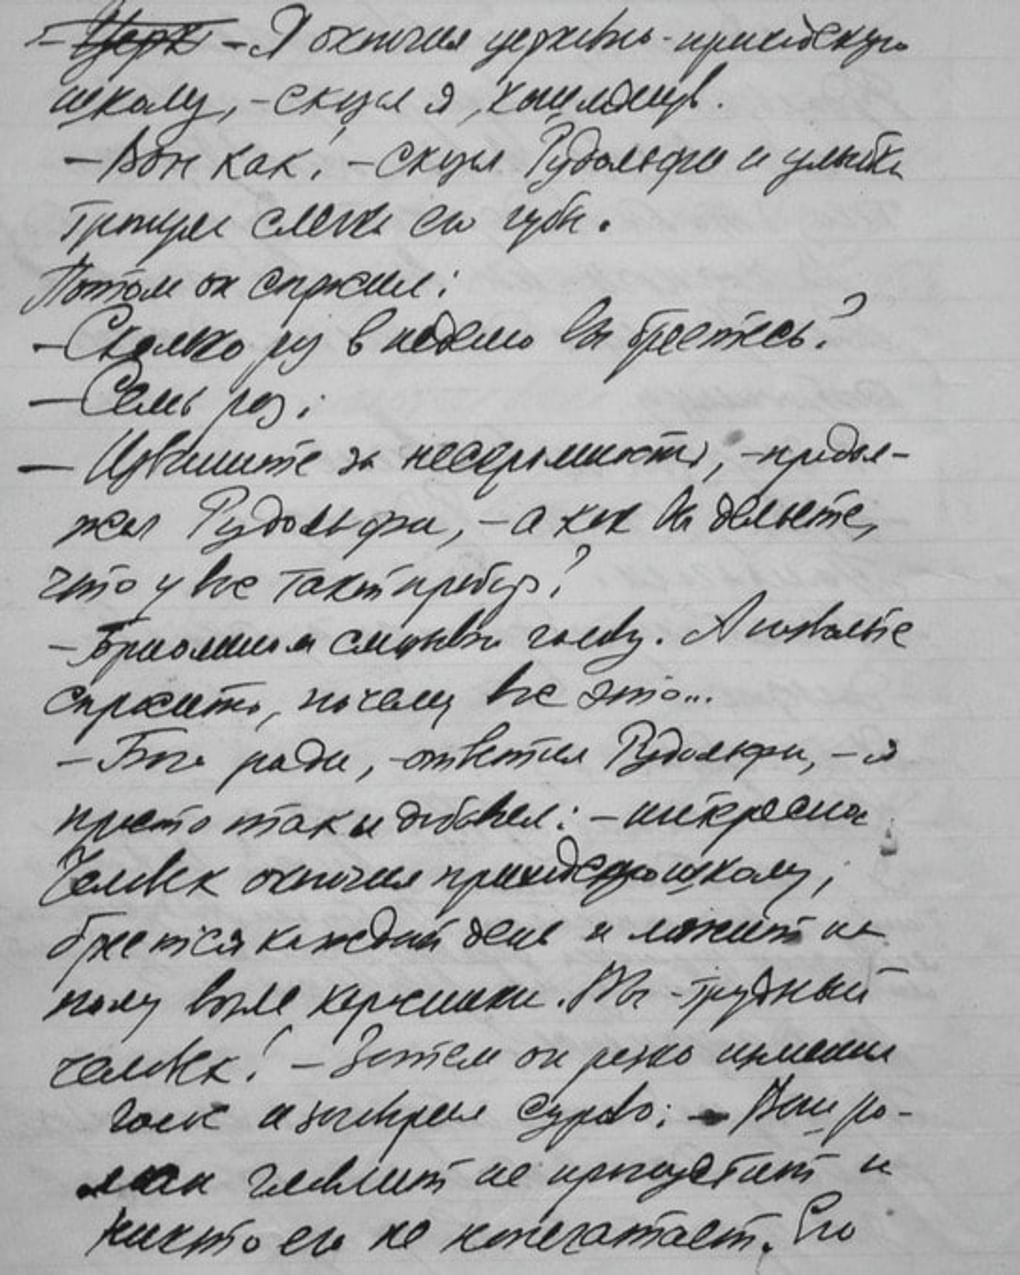 – Церк – Я окончил церковно-приходскую
школу, – сказал я, кашлянув.
– Вон как! – сказал Рудольфи и улыбка
тронула слегка его губы.
Потом он спросил:
– Сколько раз в неделю вы бреетесь?
– Семь раз.
– Извините за нескромность, – продол-
жал Рудольфи, – а как вы делаете,
что у вас такой пробор?
– Бриолином смазываю голову. А позвольте
спросить, почему все это...
– Бога ради, – ответил Рудольфи, – я
просто так и добавил: – интересно
Человек окончил приходскую школу,
бреется каждый день и лежит на
полу возле керосинки. Вы – трудный
человек! – Затем он резко изменил
голос и заговорил сурово: – Ваш ро-
ман Главлит не пропустит и
никто его не напечатает. Его